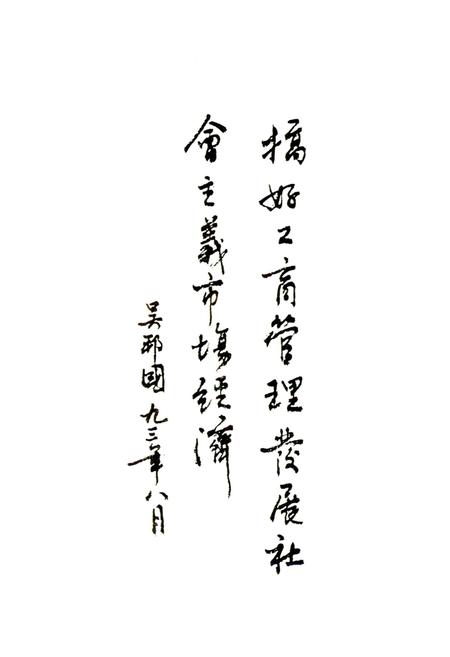 搞好工商管理發展社
會主義市場經濟
吴邦國九三年八月